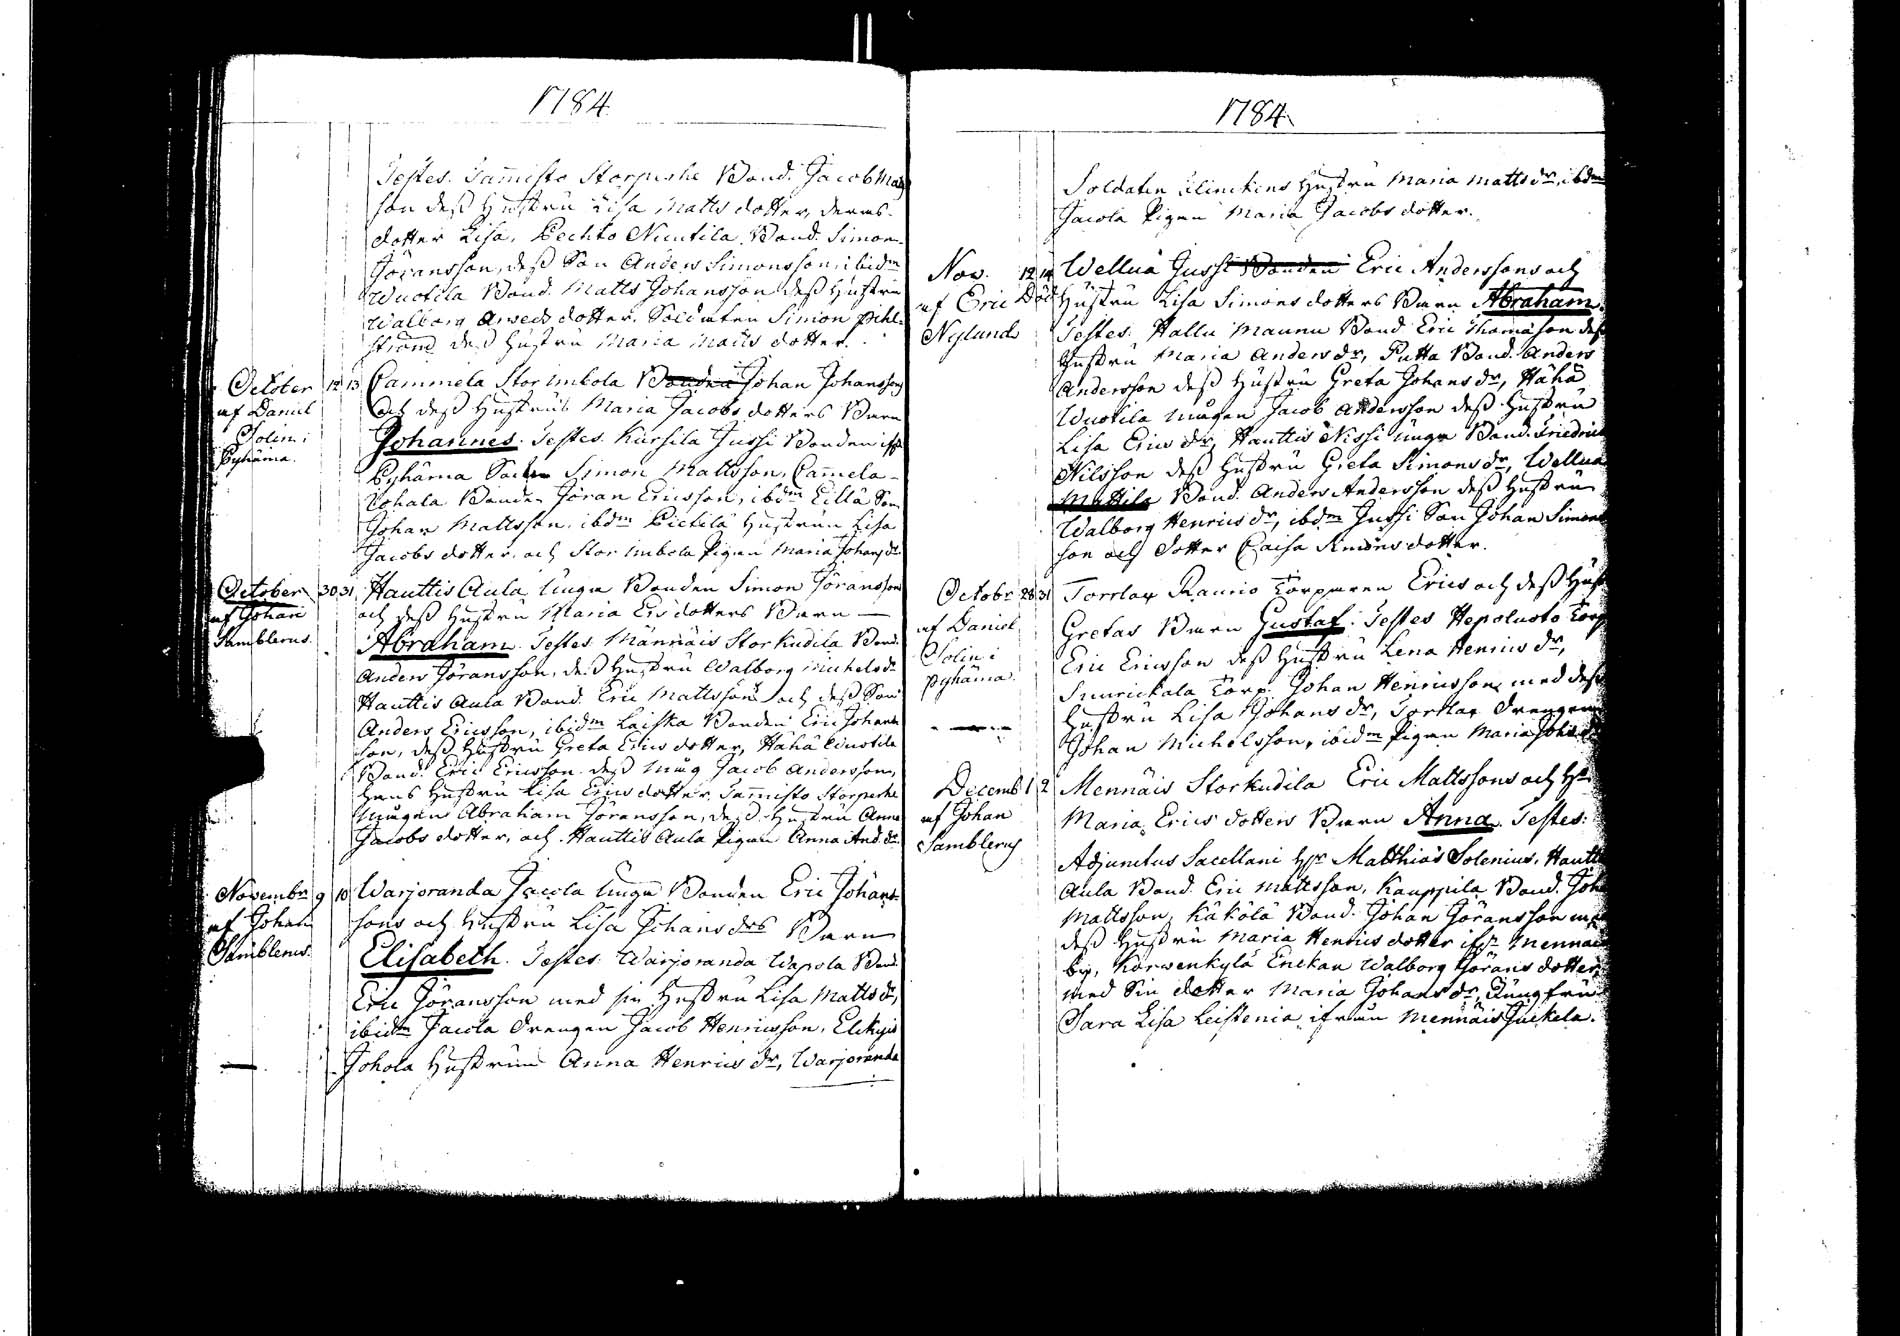 1784.
Testes. Sam̄isto Storpeske Bond. Jacob Matts
son deß Hustru Lisa Matts dotter, deras
dotter Lisa, Pechto Nuutila Bond. Simon
Jöransson, deß Son Anders Simonsson, ibidm
Wuotila Bond. Matts Johansson deß Hustru
Walborg Arveds dotter. Soldaten Simon Pihl-
strand deß Hustru Maria Matts dotter.
October 12 13 Cammela Storimbola Bonden Johan Johanssons
af Daniel och deß Hustrus Maria Jacobs dotters Barn
Solin i Johannes. Testes. Kursila Jussi Bonden ifr.
Pyhäma. Pyhäma Simon Mattsson, Cam̄ela
Uohala Bonden Jöran Ericsson, ibdm Eillä Son
Johan Mattsson, ibdm Pietilä Hustrun Lisa
Jacobs dotter, och Storimbola Pigan Maria Johans dr
October 30 31 Hauttis Aula Unga Bonden Simon Jöransson
af Johan och deß Hustru Maria Ers dotters Barn
Samblerus. Abraham. Testes. Männäis Storkudila Bond.
Anders Jöransson, deß Hustru Walborg Michels dr
Hauttis Aula Bond. Eric Mattsson och deß Son
Anders Ericsson, ibidm Laiska Bonden Eric Johans
son, deß Hustru Greta Erics dotter, Hähä Wuotila
Bond. Eric Ericsson deß Måg Jacob Andersson,
hans Hustru Lisa Erics dotter, Sam̄isto Storpeske
Mågen Abraham Jöransson, deß Hustru Anna
Jacobs dotter, och Hauttis Aula Pigan Anna And. dr
Novembr 9 10 Warjoranda Jacola Unga Bonden Eric Johans-
af Johan sons och Hustru Lisa Johans drs Barn
Samblerus. Elisabeth. Testes. Warjoranda Wapola Bond.
Eric Jöransson med sin Hustru Lisa Matts dr,
ibidm Jacola Drengen Jacob Henricsson,
Johola Hustrun Anna Henrics dr, Warjoranda
1784.
Soldaten Klinckens Hustru Maria Matts dr, ibdm
Jacola Pigan Maria Jacobs dotter.
Nov. 12 14 Wellua Jussi Bonden Eric Anderssons och
af Eric Död Hustru Lisa Simons dotters Barn Abraham.
Nylund Testes. Hallu Maunu Bond Eric Thomasson deß
Hustru Maria Anders dr, Putta Bond. Anders
Andersson deß Hustru Greta Johans dr, Hähä
Wuotila Mågen Jacob Andersson deß Hustru
Lisa Erics dr, Hauttis Nissi Unga Bond. Friedric
Nilsson deß Hustru Greta Simons dr, Wellua
Mattila Bond. Anders Andersson deß Hustru
Walborg Henrics dr, ibdm Jussi Son Johan Simons
son och Dotter Caisa Simons dotter.
Octobr 28 31 Torrlax Raunio Torparen Erics och deß Hust
af Daniel Gretas Barn Gustaf. Testes Hepoluoto Torp
Solin i Eric Ericsson deß Hustru Lena Henrics dr,
Pyhäma. Torp. Johan Henricsson med deß
Hustru Lisa Johans dr, Torrlax Drengen
Johan Michelsson, ibidm Pigan Maria Johs dr
Decemb 1 2 Mennäis Storkudila Eric Mattssons och Hu
af Johan Maria Erics dotters Barn Anna. Testes:
Samblerus Adjunctus Sacellani Hr Matthias Solenius, Hautti
Aula Bond. Eric Mattsson, Kauppila Bond. Joh
Mattsson, Käkölä Bond. Johan Jöransson med
deß Hustru Maria Henrics dotter ifr. Mennäis
by, Korwenkylä Enckan Walborg Jörans dotter
med Sin dotter Maria Johans dr, Jungfru
Sara Lisa Leistenia ifrån Mennäis Juckela.